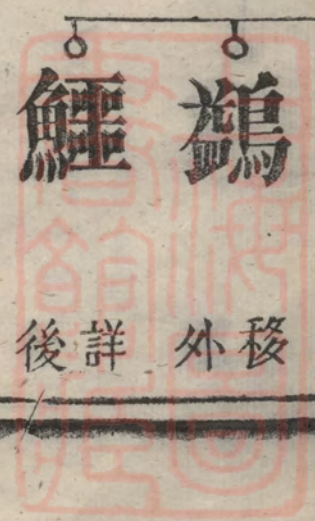 鷁
移外
鱷
詳後